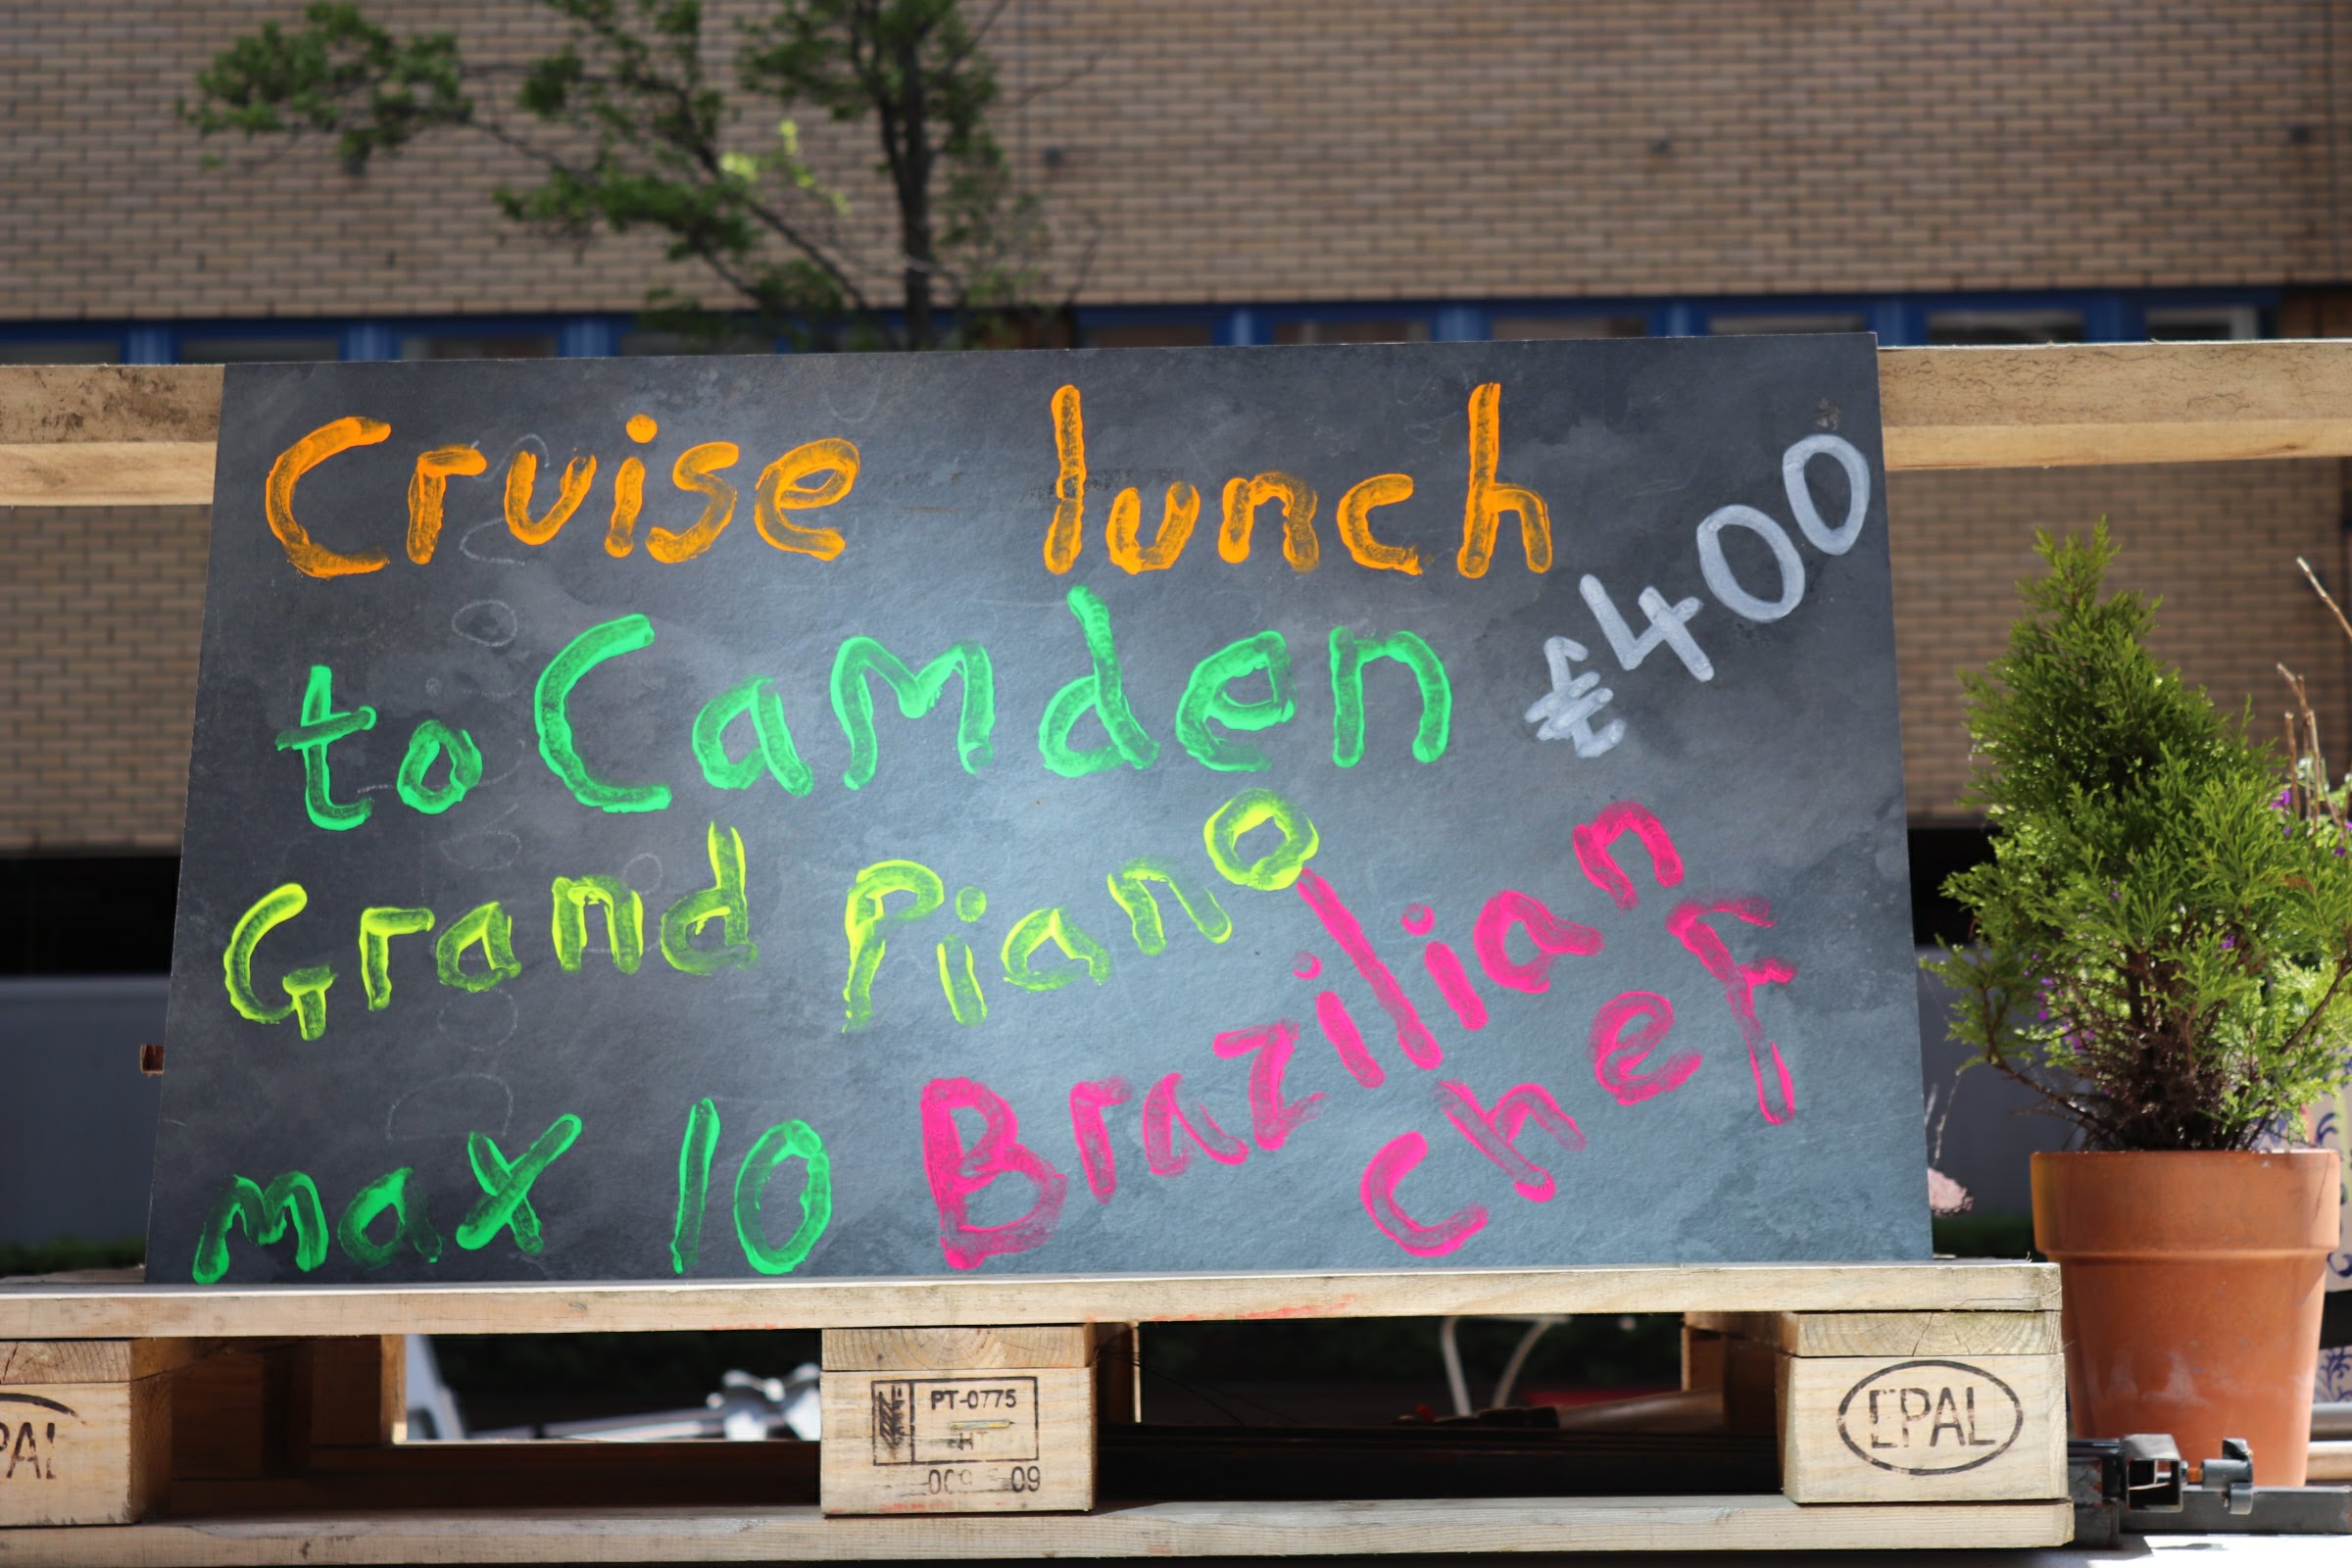 Cruise lunch
to Camden £400
Grand Piano
max 10 Brazilian
chef
PT-0775
HT
EPAL